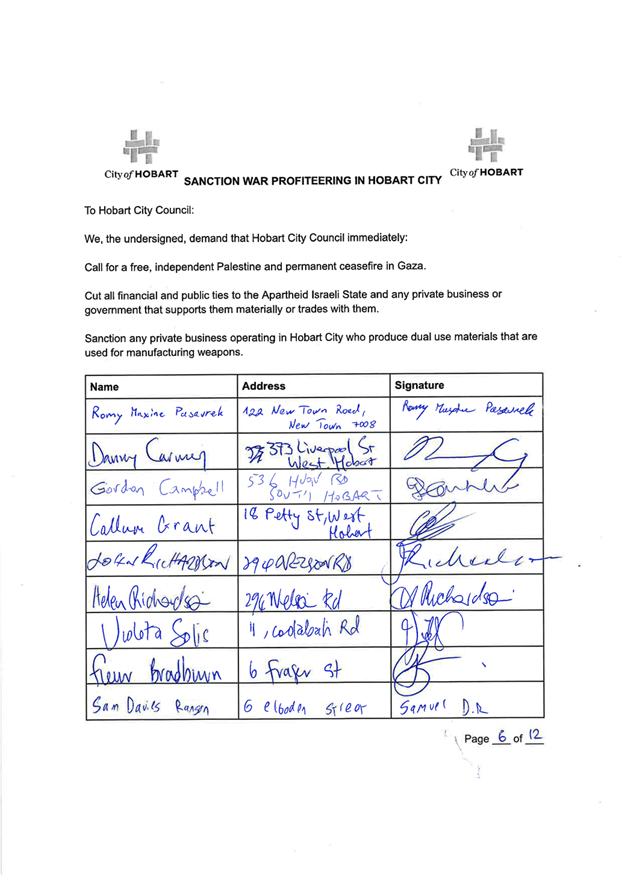 City of HOBART
City of HOBART
SANCTION WAR PROFITEERING IN HOBART CITY
To Hobart City Council:
We, the undersigned, demand that Hobart City Council immediately:
Call for a free, independent Palestine and permanent ceasefire in Gaza.
Cut all financial and public ties to the Apartheid Israeli State and any private business or
government that supports them materially or trades with them.
Sanction any private business operating in Hobart City who produce dual use materials that are
used for manufacturing weapons.
Name Address Signature
Romy Maxine Pasavrek 122 New Town Road, Romy Maxine Pasavrek
New Town 7008
Danny 373 Liverpool St
West Hobart
Gordon Campbell 536 HUON RD
SOUTH HOBART
Callum Grant 18 Petty St, West
Hobart
RICHARDSON 296 RD Richardson
Helen Richardson 296 Nelson Rd Richardson
Violeta Solis 11, coolabah Rd
Fleur Bradburn 6 Fraser St
Sam Davies Ransen 6 elboden street Samuel D.R
Page 6 of 12